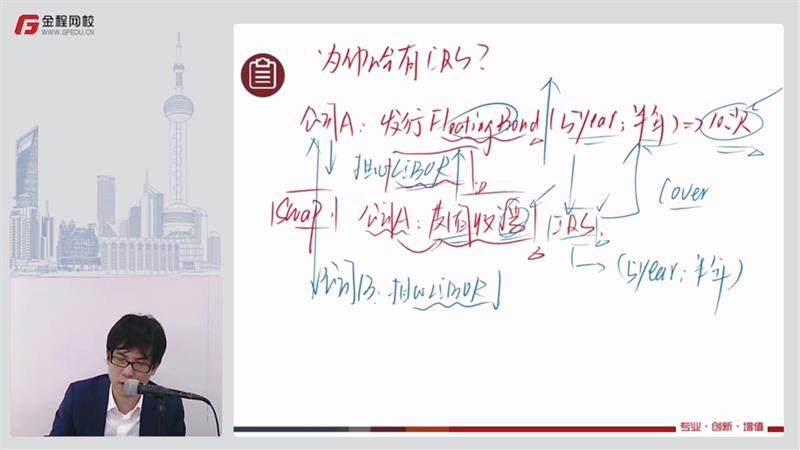 金程网校
WWW.GFEDU.CN
为什么有IRS?
公司A: 发行Floating Bond (5year; 半年) => 10次
担心LIBOR↑
Cover
Swap 公司A: 支固收浮 IRS
(5year; 半年)
公司B: 担心LIBOR↓
专业·创新·增值